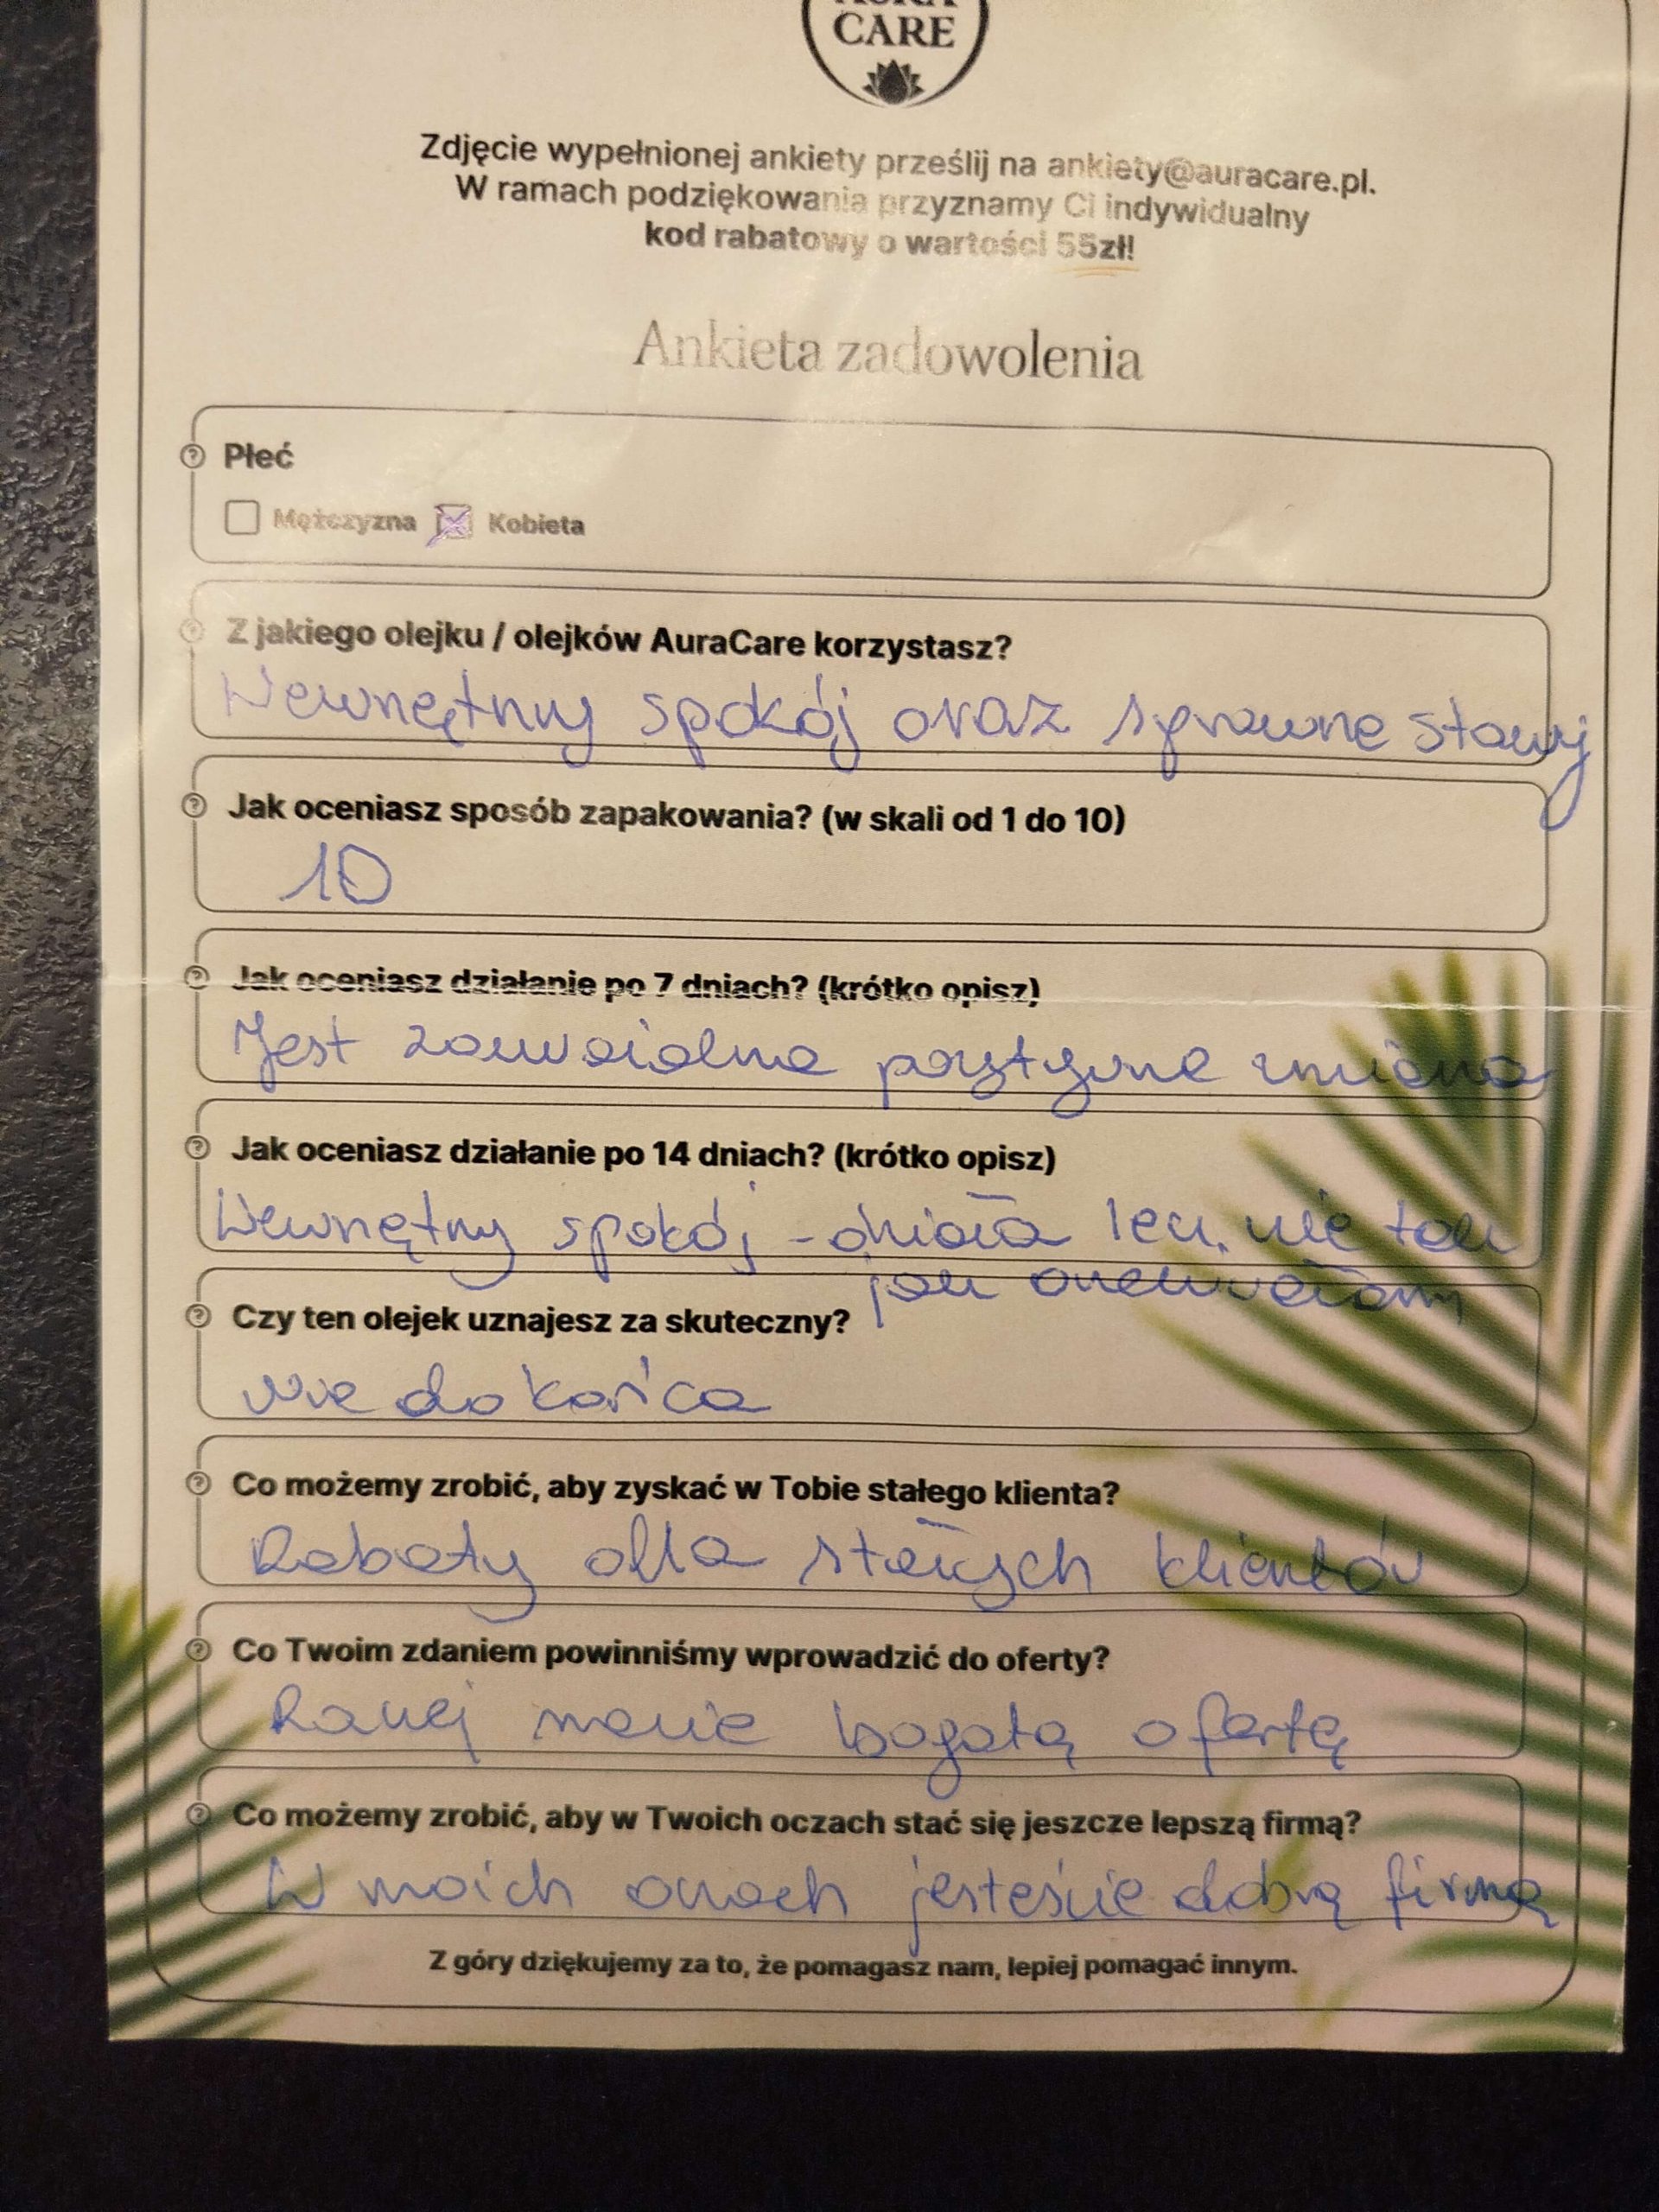 CARE
Zdjęcie wypełnionej ankiety prześlij na ankiety@auracare.pl.
W ramach podziękowania przyznamy Ci indywidualny
kod rabatowy o wartości 55zł!
Ankieta zadowolenia
Płeć
Mężczyzna Kobieta
Z jakiego olejku / olejków AuraCare korzystasz?
Wewnętrzny spokój oraz sprawne stawy
Jak oceniasz sposób zapakowania? (w skali od 1 do 10)
10
Jak oceniasz działanie po 7 dniach? (krótko opisz)
Jest zauważalna pozytywna zmiana
Jak oceniasz działanie po 14 dniach? (krótko opisz)
Wewnętrzny spokój - działa lecz nie tak
jak oczekiwałam
Czy ten olejek uznajesz za skuteczny?
nie do końca
Co możemy zrobić, aby zyskać w Tobie stałego klienta?
Rabaty dla stałych klientów
Co Twoim zdaniem powinniśmy wprowadzić do oferty?
Raczej macie bogatą ofertę
Co możemy zrobić, aby w Twoich oczach stać się jeszcze lepszą firmą?
W moich oczach jesteście dobrą firmą
Z góry dziękujemy za to, że pomagasz nam, lepiej pomagać innym.